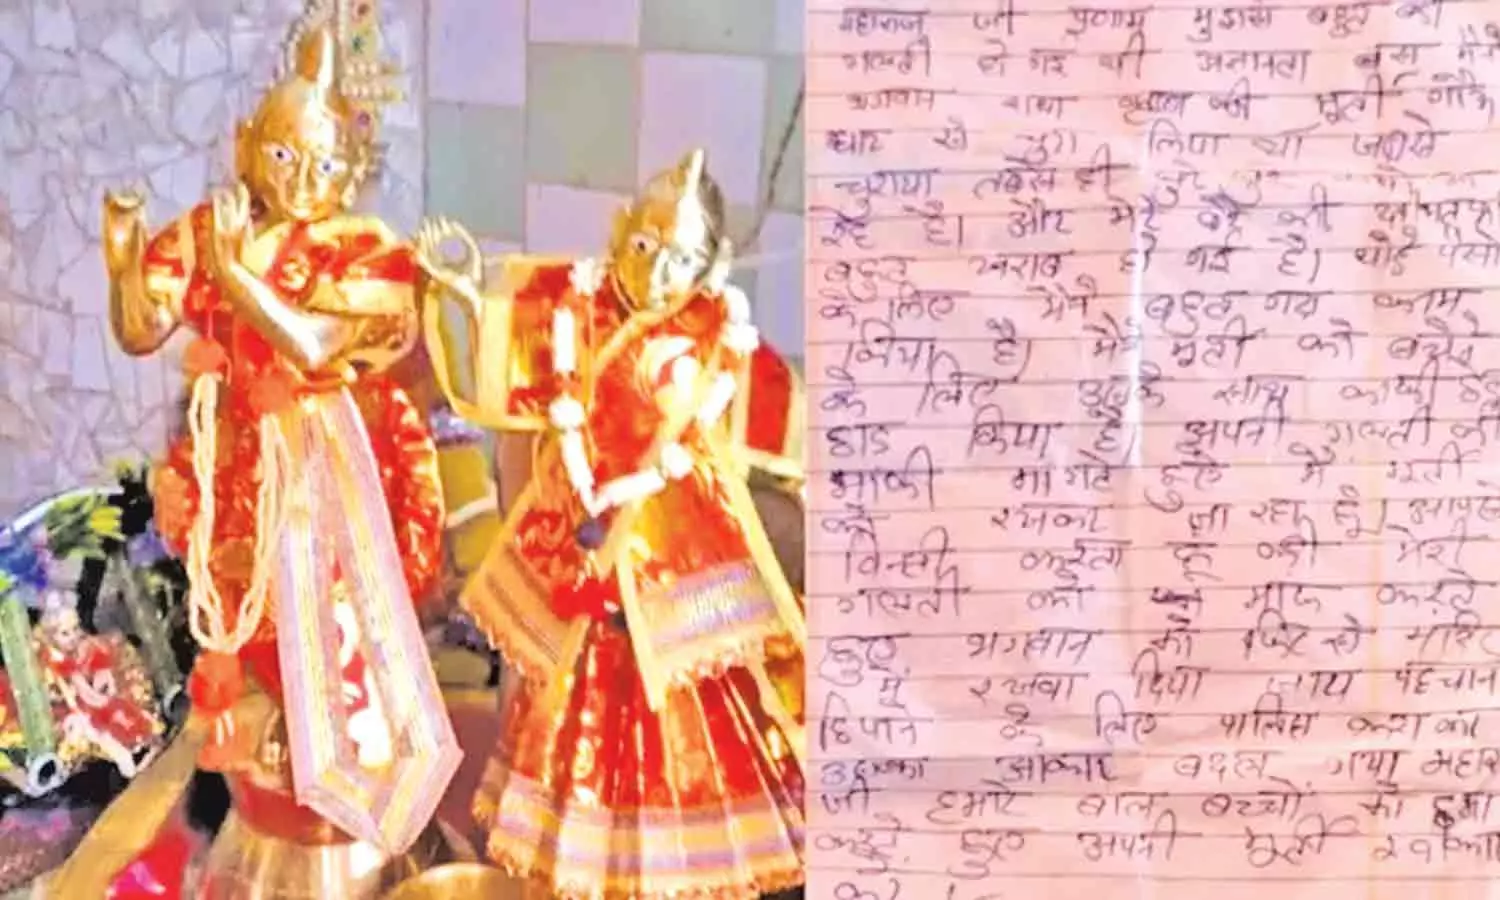 महाराज जी प्रणाम मुझसे बहुत बड़ी
गलती हो गई थी अज्ञानता बस मैंने
भगवान राधा कृष्ण की मूर्ती गौऊ
घाट से चुरा लिया था जबसे
चुराया तबसे ही
रहे है। और मेरे बेटे की तबीयत
बहुत खराब हो गई है। थोडे पैसो
के लिए मैंने बहुत गंदा काम
किया है। मैंने मूर्ती को बेचने
के लिए उसके साथ काफी छेड़
छाड़ किया है। अपनी गलती की
माफी मांगते हुए मैं मूर्ती
को रखकर जा रहा हूँ। आपसे
विनती करता हूँ की मेरी
गलती को माफ करते
हुए भगवान को फिर से मंदिर
में रखवा दिया जाय पहचान
छिपाने के लिए पालिस कराकर
उसका आकार बदल गया महाराज
जी हमारे बाल बच्चों को क्षमा
करते हुए अपनी मूर्ती स्वीकार
करे